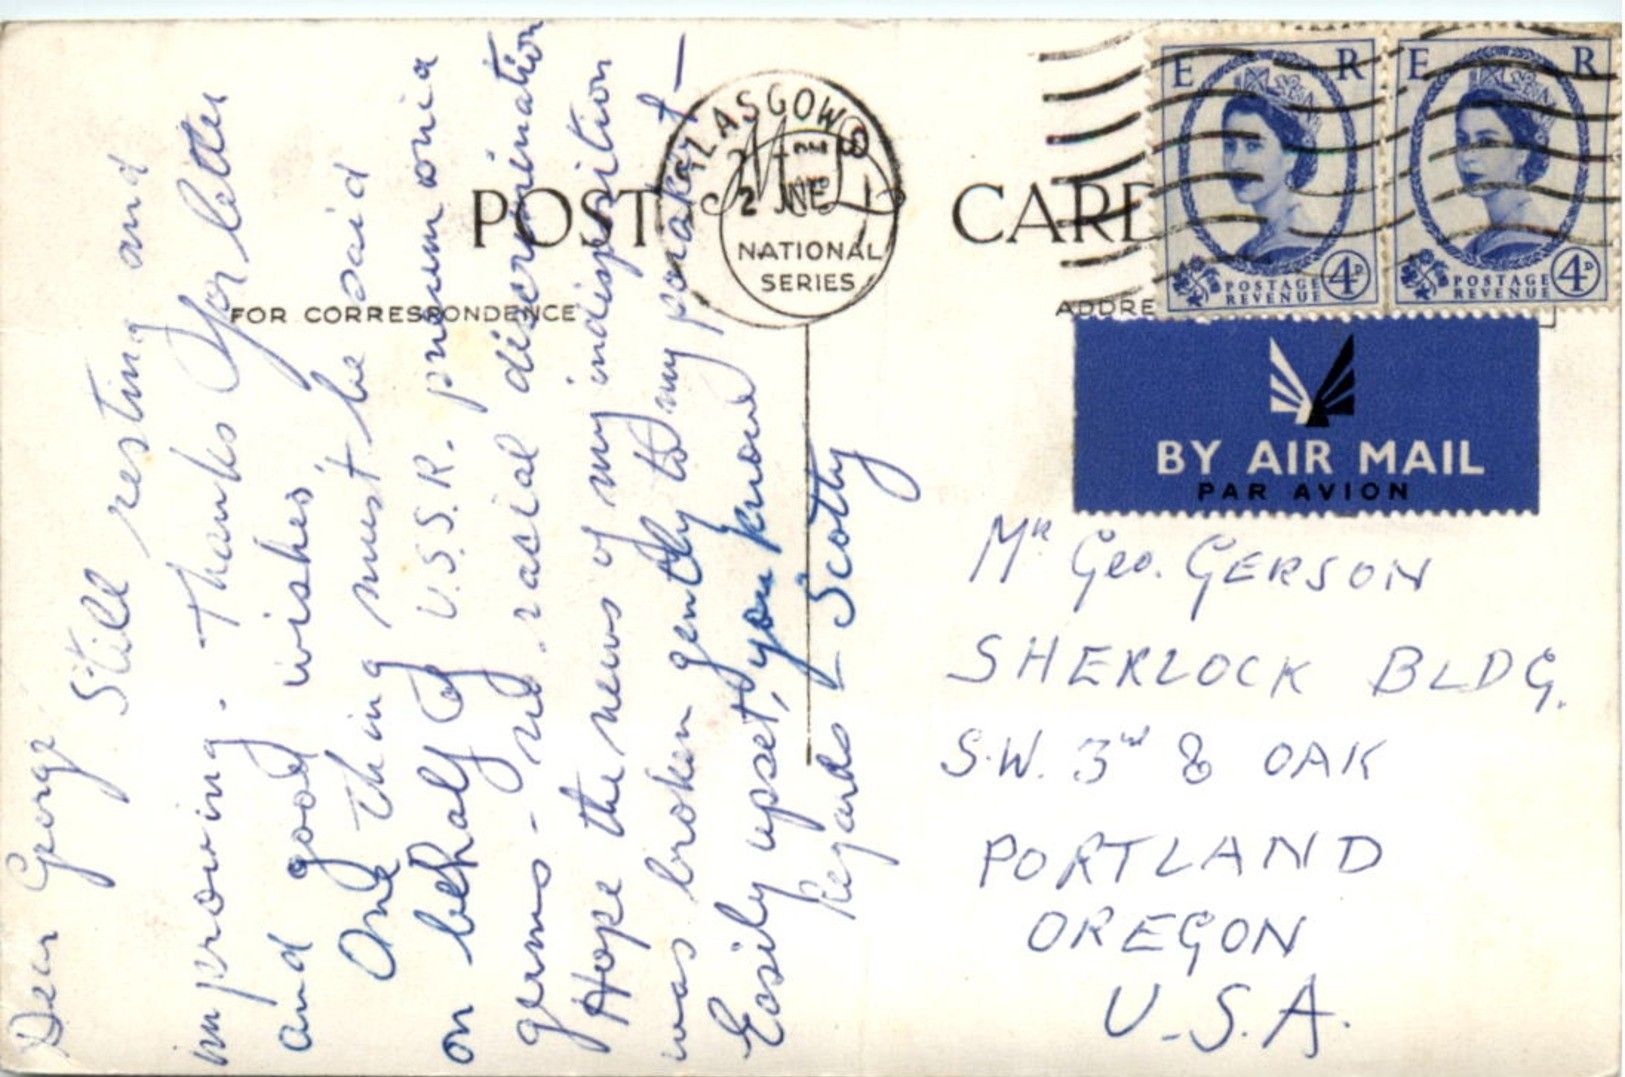 Dear George
Still resting and
improving. Thanks for letter
and good wishes.
One thing must be said
on behalf of U.S.S.R. pneumonia
germs - no racial discrimination
Hope the news of my indisposition
was broken gently to my parakeet —
Easily upset, you know
Regards - Scotty
POST CARD
FOR CORRESPONDENCE
ADDRE
GLASGOW
2 JNE
NATIONAL
SERIES
E R
POSTAGE
REVENUE
4D
E R
POSTAGE
REVENUE
4D
BY AIR MAIL
PAR AVION
Mr Geo. GERSON
SHERLOCK BLDG.
S.W. 3rd & OAK
PORTLAND
OREGON
U.S.A.